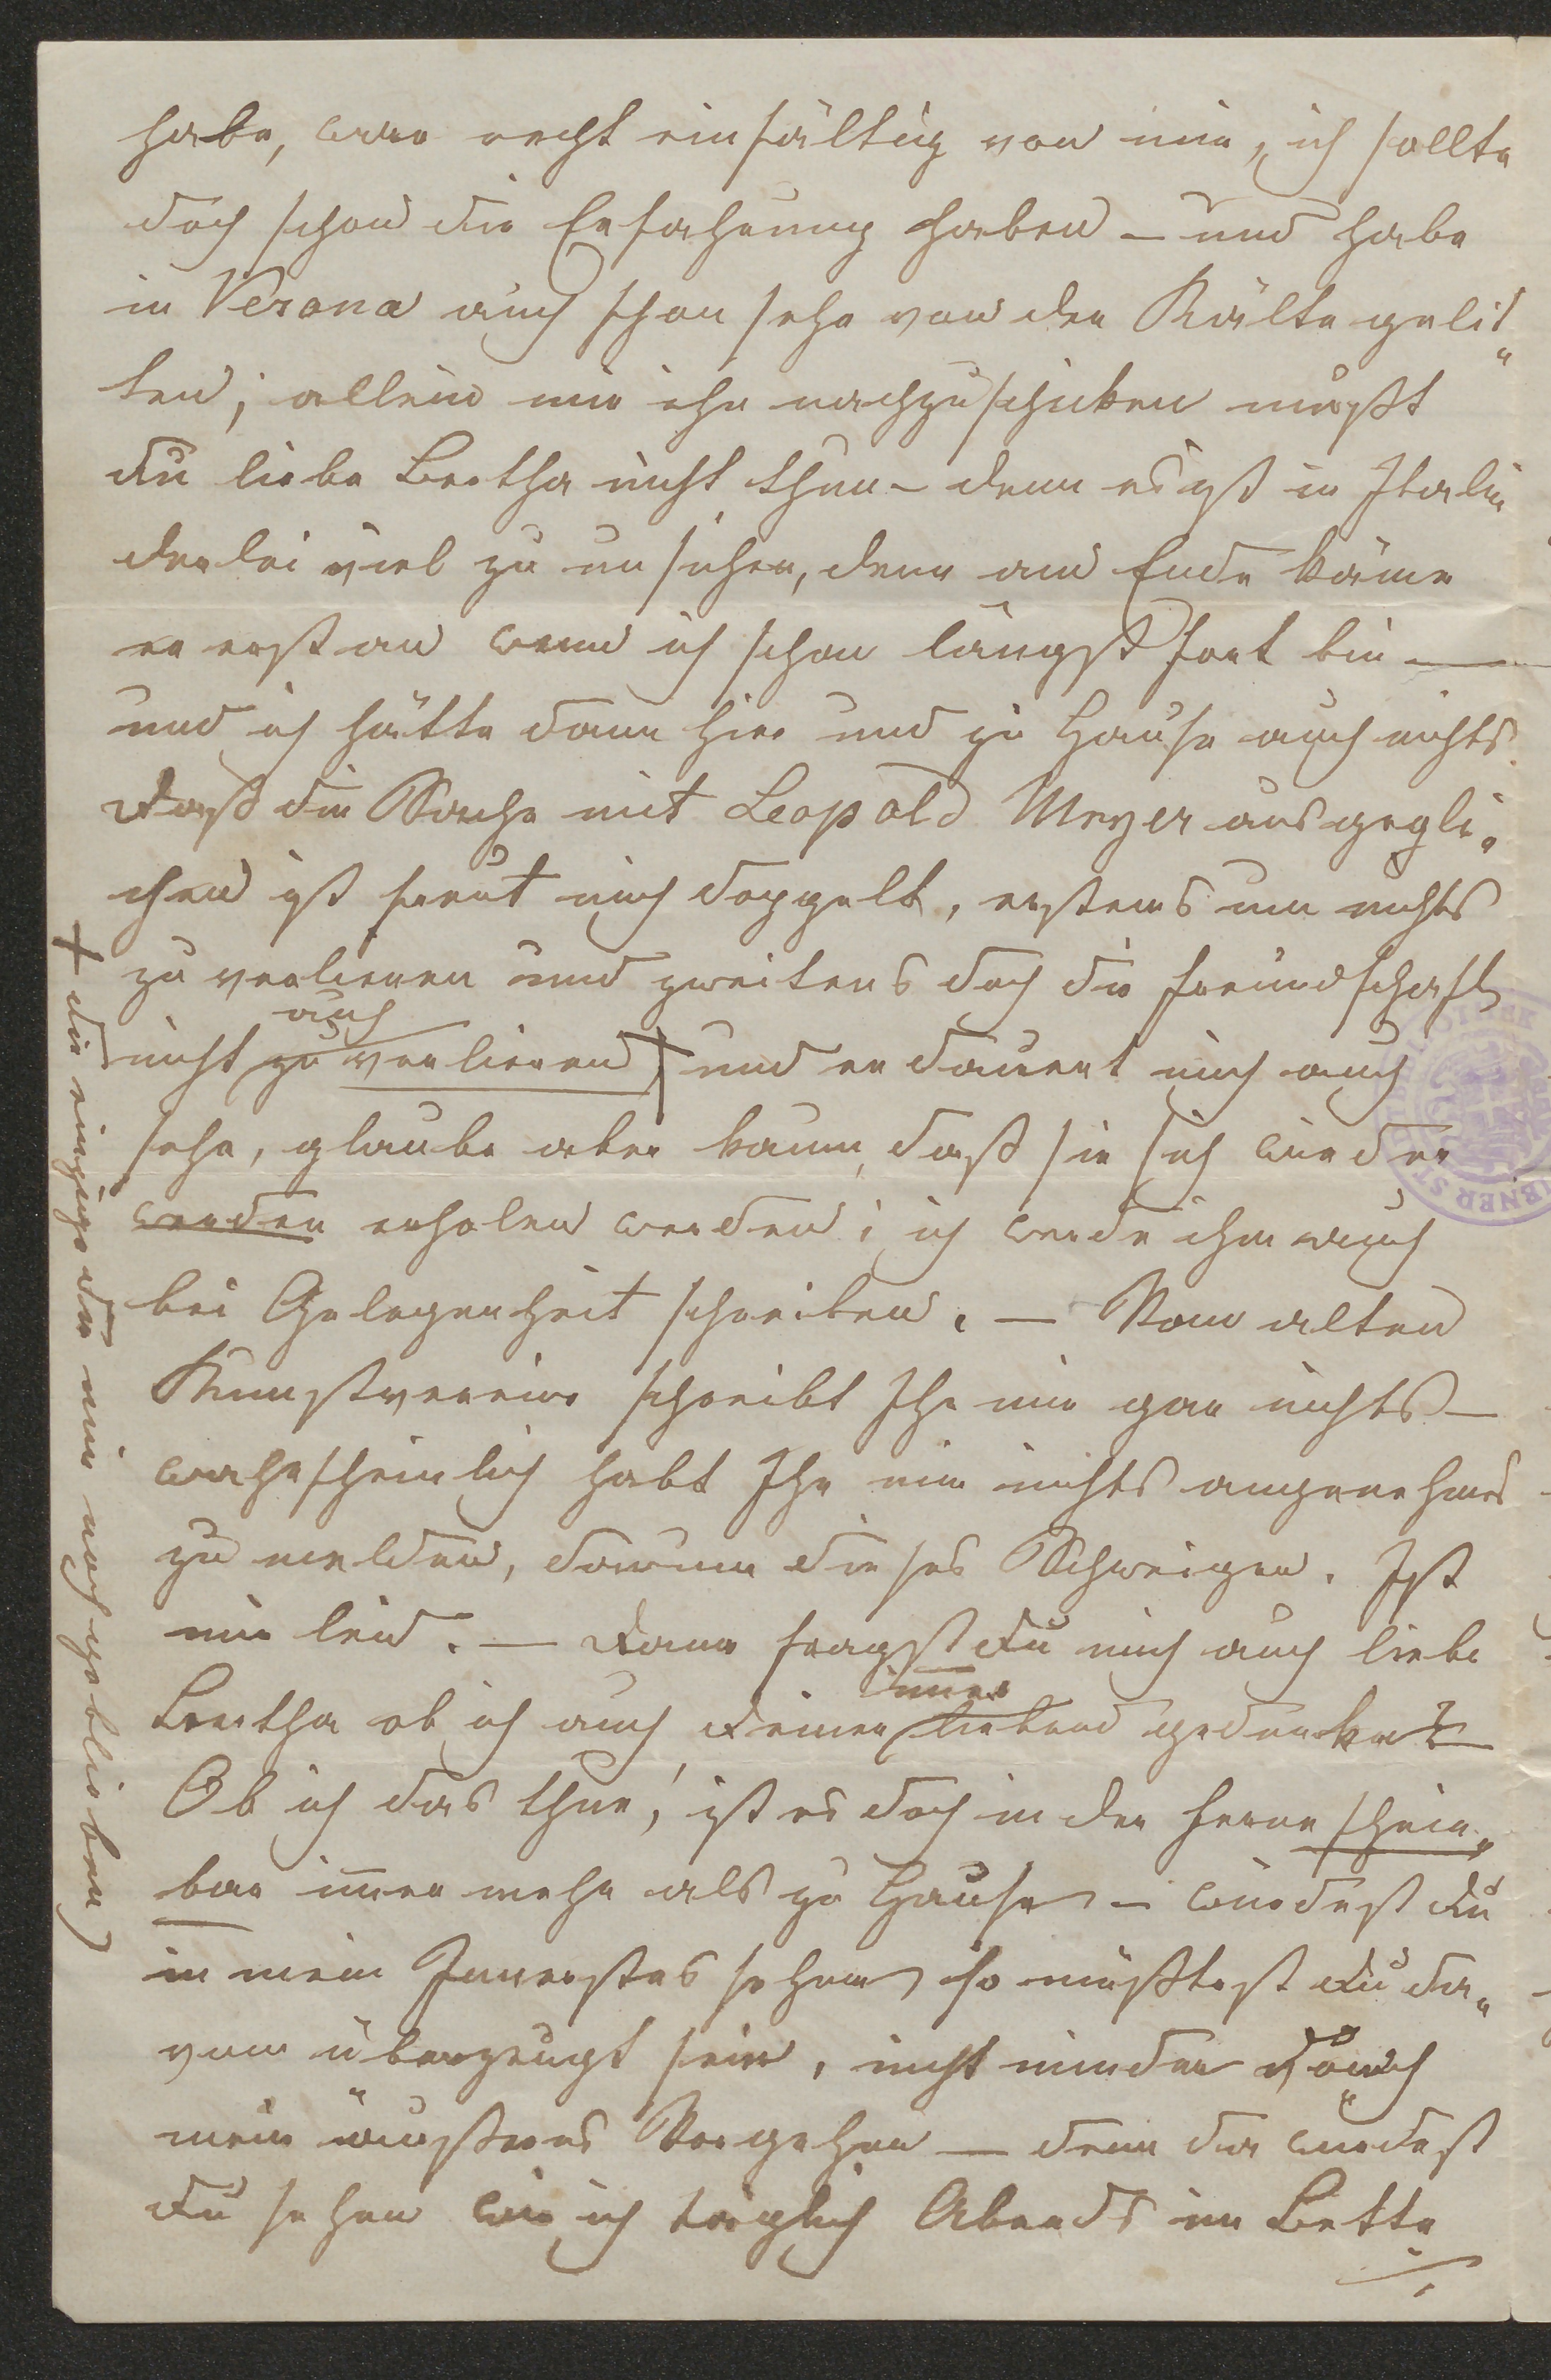 habe, war recht einfältig von mir, ich sollte
doch schon die Erfahrung haben – und habe
in Verona auch schon sehr von der Kälte gelit„
ten; allein mir ihn nachzuschicken mußt
Du liebe Bertha nicht thun – denn es ist in Italien
derlei viel zu unsicher, denn am Ende käme
er erst an wenn ich schon längst fort bin —
und ich hätte dann hier und zu Hause auch nichts.
Daß die Sache mit Leopold Meyer ausgegli„
chen ist freut mich doppelt, erstens um nichts
zu verlieren und zweitens doch die Freundschaft
auch
nicht zu verlieren + und er dauert mich auch
sehr, glaube aber kaum, daß sie sich wieder
werden erholen werden; ich werde ihm auch
bei Gelegenheit schreiben. — Vom alten
Kunstverein schreibt Ihr mir gar nichts –
wahrscheinlich habt Ihr mir nichts angenehmes
zu melden, darum dieses Schweigen. Ist
mir leid. — Dann fragst Du mich auch liebe
immer
Bertha ob ich auch Deiner liebend gedenke?
Ob ich das thue, ist es doch in der Ferne schein„
bar immer mehr als zu Hause – würdest Du
in mein Innerstes sehen, so müßtest Du da„
von überzeugt sein, nicht minder durch
mein äußeres Vorgehen — denn da würdest
Du sehen wie ich täglich Abends im Bette
./.
+ die einzige die mir noch geblieben)